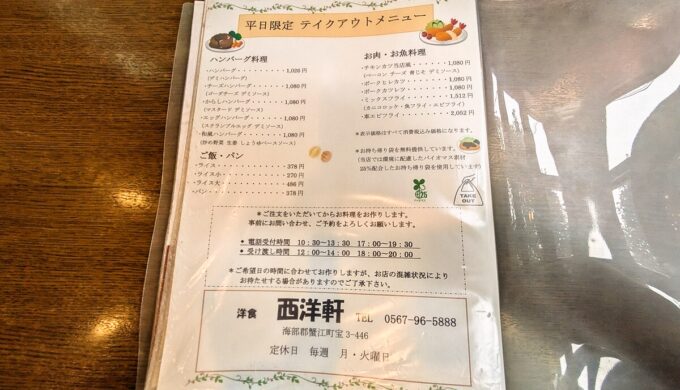 平日限定 テイクアウトメニュー
ハンバーグ料理
・ハンバーグ・・・・・・・・・1,026円
(デミハンバーグ)
・チーズハンバーグ・・・・・・1,080円
(ゴーダチーズ デミソース)
・からしハンバーグ・・・・・・1,080円
(マスタード デミソース)
・エッグハンバーグ・・・・・・1,080円
(スクランブルエッグ デミソース)
・和風ハンバーグ・・・・・・・1,080円
(炒め野菜 生姜 しょうゆベースソース)
ご飯・パン
・ライス・・・・・・・・・・・378円
・ライス小・・・・・・・・・・270円
・ライス大・・・・・・・・・・486円
・パン・・・・・・・・・・・・378円
お肉・お魚料理
・チキンカツ当店風・・・・・1,080円
(ベーコン チーズ 青じそ デミソース)
・ポークヒレカツ・・・・・・1,080円
・ポークカツレツ・・・・・・1,080円
・ミックスフライ・・・・・・1,512円
(カニコロッケ・魚フライ・エビフライ)
・車エビフライ・・・・・・・2,052円
*表示価格はすべて消費税込み価格になります。
*お持ち帰り袋を無料提供しています。
(当店では環境に配慮したバイオマス素材
25%配合したお持ち帰り袋を使用しています)
25
TAKE OUT
*ご注文をいただいてからお料理をお作りします。
事前にお問い合わせ、ご予約をよろしくお願いします。
* 電話受付時間 10:30~13:30 17:00~19:30
* 受け渡し時間 12:00~14:00 18:00~20:00
*ご希望日の時間に合わせてお作りしますが、お店の混雑状況により
お待たせする場合がありますのでご了承下さい。
洋食 西洋軒 TEL 0567-96-5888
海部郡蟹江町宝3-446
定休日 毎週 月・火曜日